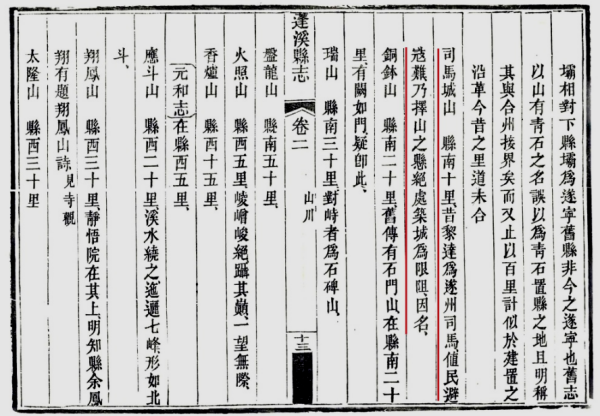 壩相對下縣壩爲遂寧舊縣非今之遂寧也舊志
以山有青石之名誤以爲青石置縣之地且明稱
其與合州接界矣而又止以百里計似於建置之
沿革今昔之里道未合
司馬城山 縣南十里昔黎達爲遂州司馬値民避
寇難乃擇山之懸絕處築城爲限阻因名
銅鉢山 縣南二十里舊傳有石門山在縣南二十
里有闕如門疑卽此
瑞山 縣南三十里對峙者爲石碑山
蓬溪縣志 卷二 山川 十三
盤龍山 縣南五十里
火照山 縣西五里崚嶒峻絕躡其巔一望無際
香爐山 縣西十五里
元和志在縣西五里
應斗山 縣西二十里溪水繞之迤邐七峰形如北
斗
翔鳳山 縣西三十里靜悟院在其上明知縣余鳳
翔有題翔鳳山詩見寺觀
太隆山 縣西三十里